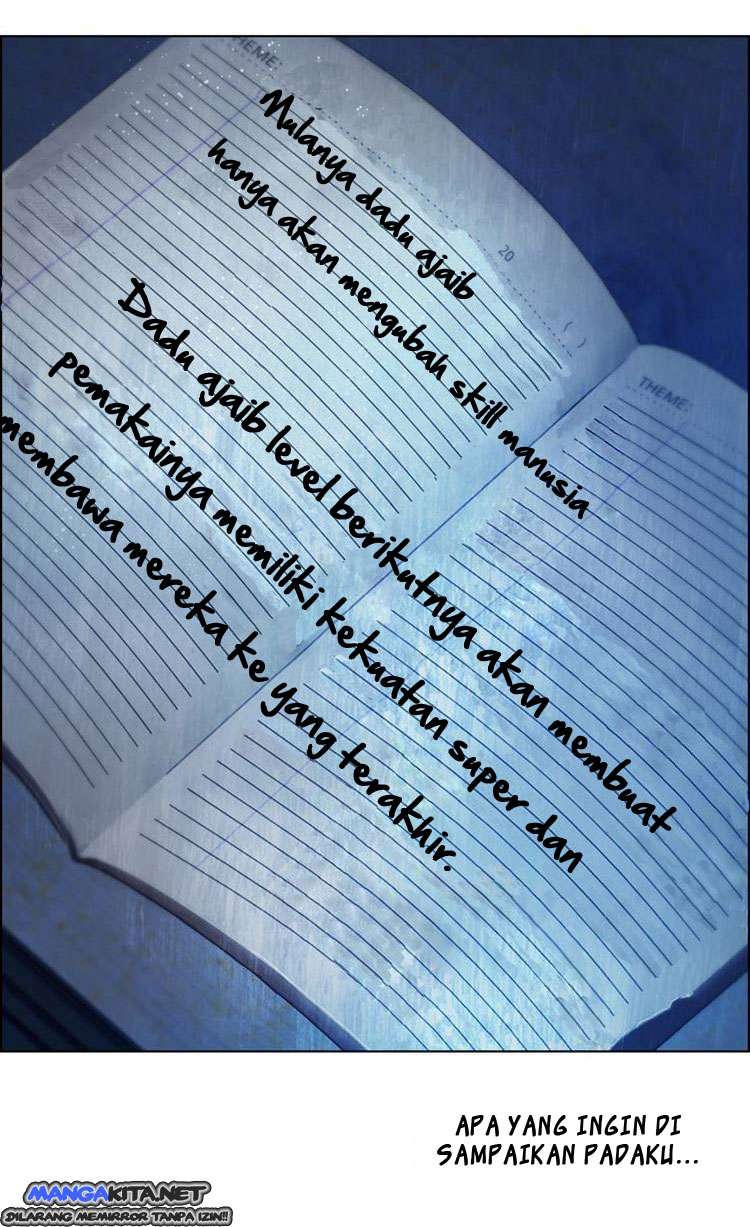 THEME:
Mulanya dadu ajaib
hanya akan mengubah skill manusia
20
( )
THEME:
Dadu ajaib level berikutnya akan membuat
pemakainya memiliki kekuatan super dan
membawa mereka ke yang terakhir.
APA YANG INGIN DI
SAMPAIKAN PADAKU...
MANGAKITA.NET
DILARANG MEMIRROR TANPA IZIN!!